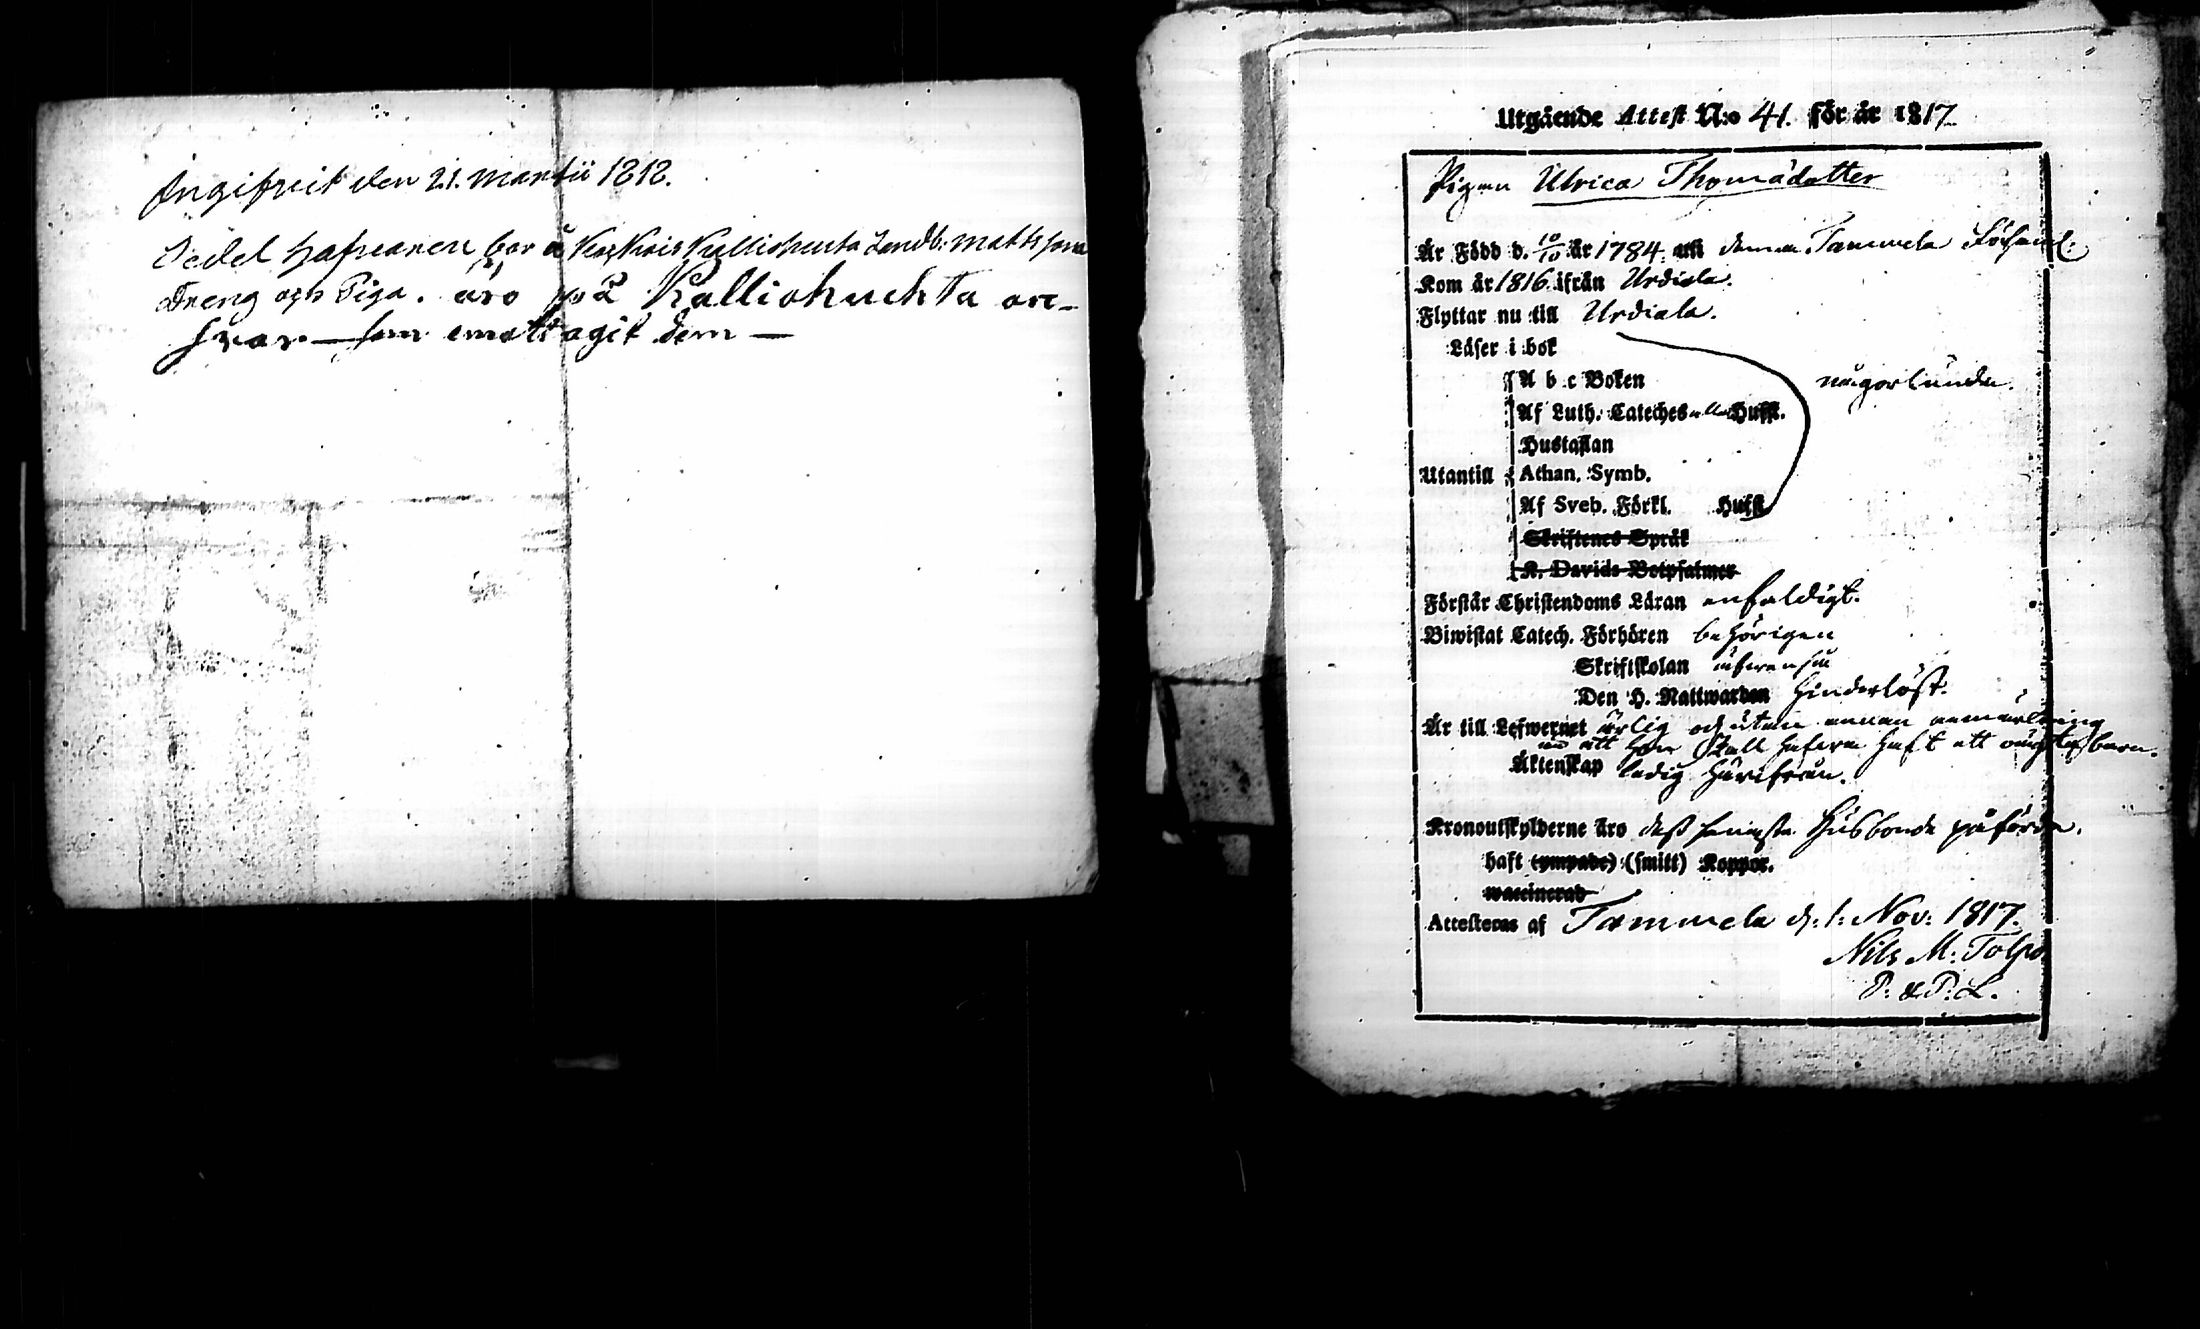 Angifvit den 21. Martii 1818.
Sedel hafvaren bor å Kalliohuhta Landb: Matts som
Dreng och Piga. äro på Kalliohuchta an-
svar — som emottagit dem —
Utgående Attest N:o 41. för år 1817
Pigan Ulrica Thomädotter
Är Född d. 10/10 år 1784. uti denna Tammela Församl:
Kom år 1816. ifrån Urdiala.
Flyttar nu till Urdiala.
Läser i bok
A b c Boken någorlunda.
Af Luth. Cateches Hufst.
Hustaflan
Utantill Athan. Symb.
Af Sveb. Förkl. Hufst
Skriftenes Språk
K. Davids Botpsalmer
Förstår Christendoms Läran enfaldigt.
Biwistat Catech. Förhören behörigen
Skriftskolan äfwenså
Den H. Nattwarden hinderlöst.
Är till Lefwernet ärlig och utan annan anmärkning
än att hon skall hafwa haft ett oägta barn.
Äktenskap ledig härifrån.
Kronoutskylderne äro dess senaste Husbonde påförde.
haft (ympade) (smitt) Koppor.
waccinerad
Attesteras af Tammela d. 1: Nov: 1817.
Nils M: Tolpo
P: & P: L.